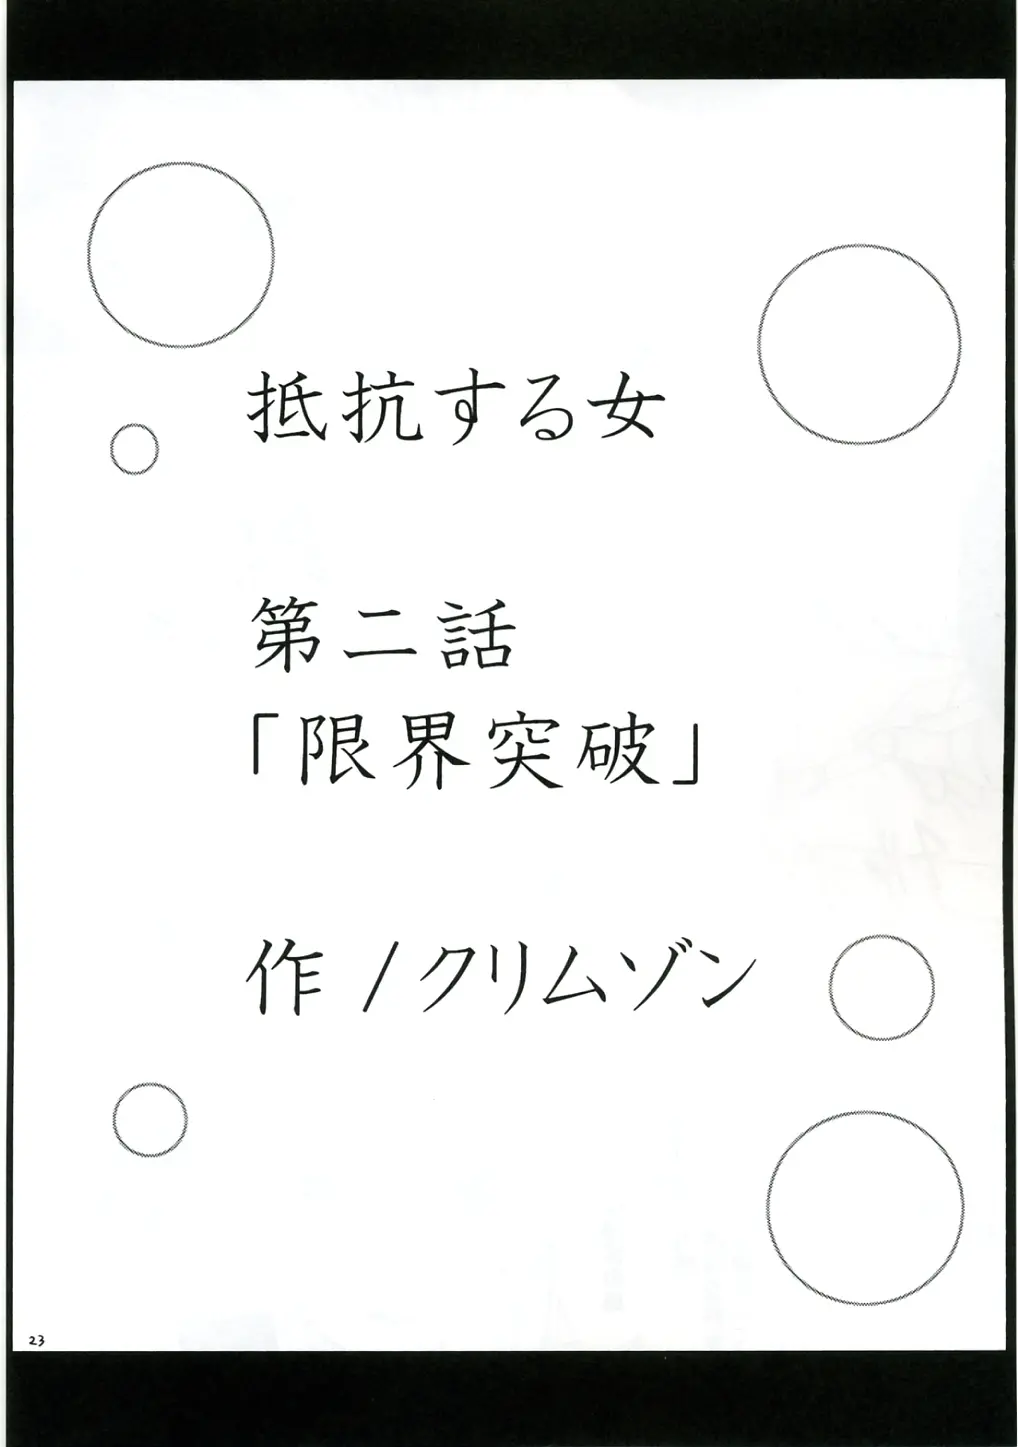 抵抗する女
第二話
「限界突破」
作/クリムゾン
23